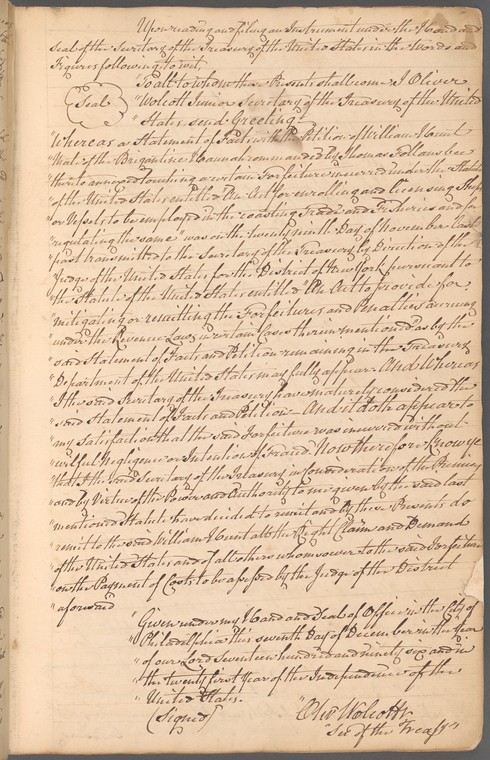 Upon reading and filing an Instrument under the Hand and
seal of the Secretary of the Treasury of the United States in the Words and
Figures following to wit,
"To all to whom these Presents shall come I Oliver
Seal
"Wolcott Junior Secretary of the Treasury of the United
"States send Greeting!
"Whereas a Statement of Facts with the Petition of William Hunt
"Mate of the Brigantine Hannah commanded by Thomas Follansbee
"thereto annexed touching a certain Forfeiture incurred under the Statute
"of the United States entitled "An Act for enrolling and licensing Ships
"or Vessels to be employed in the coasting Trade and Fisheries and for
"regulating the same" was on the twenty ninth Day of November last
"past transmitted to the Secretary of the Treasury by Direction of the
"Judge of the United States for the District of New York pursuant to
"the Statute of the United States entitled "An Act to provide for
"mitigating or remitting the Forfeitures and Penalties accruing
"under the Revenue Laws in certain Cases therein mentioned as by the
"said Statement of Facts and Petition remaining in the Treasury
"Department of the United States may fully appear And Whereas
"I the said Secretary of the Treasury have maturely considered the
"said Statement of Facts and Petition And it doth appear to
"my Satisfaction that the said Forfeiture was incurred without
"wilful Negligence or Intention of Fraud Now therefore know ye
"that I the said Secretary of the Treasury in consideration of the Premises
"and by Virtue of the Power and Authority to me given by the said last
"mentioned Statute have decided to remit and by these Presents do
"remit to the said William Hunt all the Right Claim and Demand
"of the United States and of all others whomsoever to the said Forfeiture
"on the Payment of Costs to be assessed by the Judge of the District
"aforesaid
"Given under my Hand and Seal of Office in the City of
"Philadelphia this seventh Day of December in the Year
"of our Lord seventeen hundred and ninety six and in
"the twenty first Year of the Independence of the
"United States.
(Signed)
"Oliv Wolcott Jr
"Sec of the Treasy"